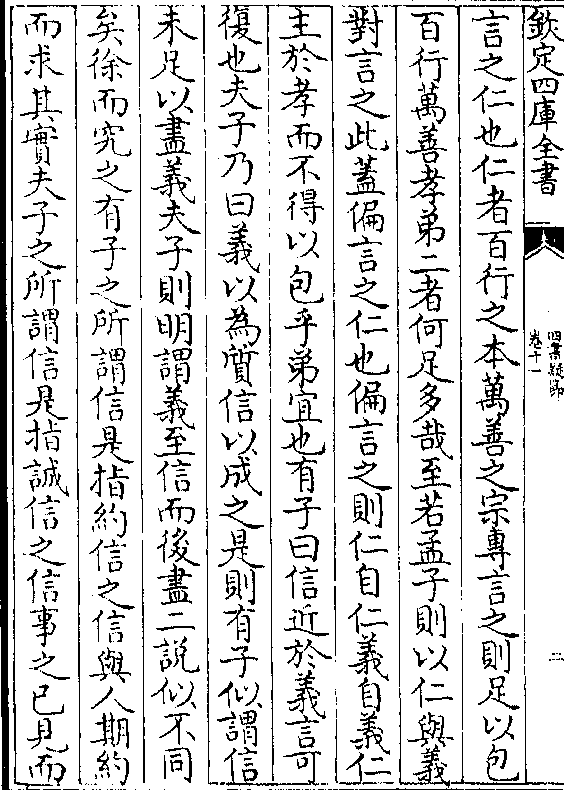 欽定四庫全書
四書疑節
卷十一
二
言之仁也仁者百行之本萬善之宗專言之則足以包
百行萬善孝弟二者何足多哉至若孟子則以仁與義
對言之此蓋偏言之仁也偏言之則仁自仁義自義仁
主於孝而不得以包乎弟宜也有子曰信近於義言可
復也夫子乃曰義以為質信以成之是則有子似謂信
未足以盡義夫子則明謂義至信而後盡二說似不同
矣徐而究之有子之所謂信是指約信之信與人期約
而求其實夫子之所謂信是指誠信之信事之已見而